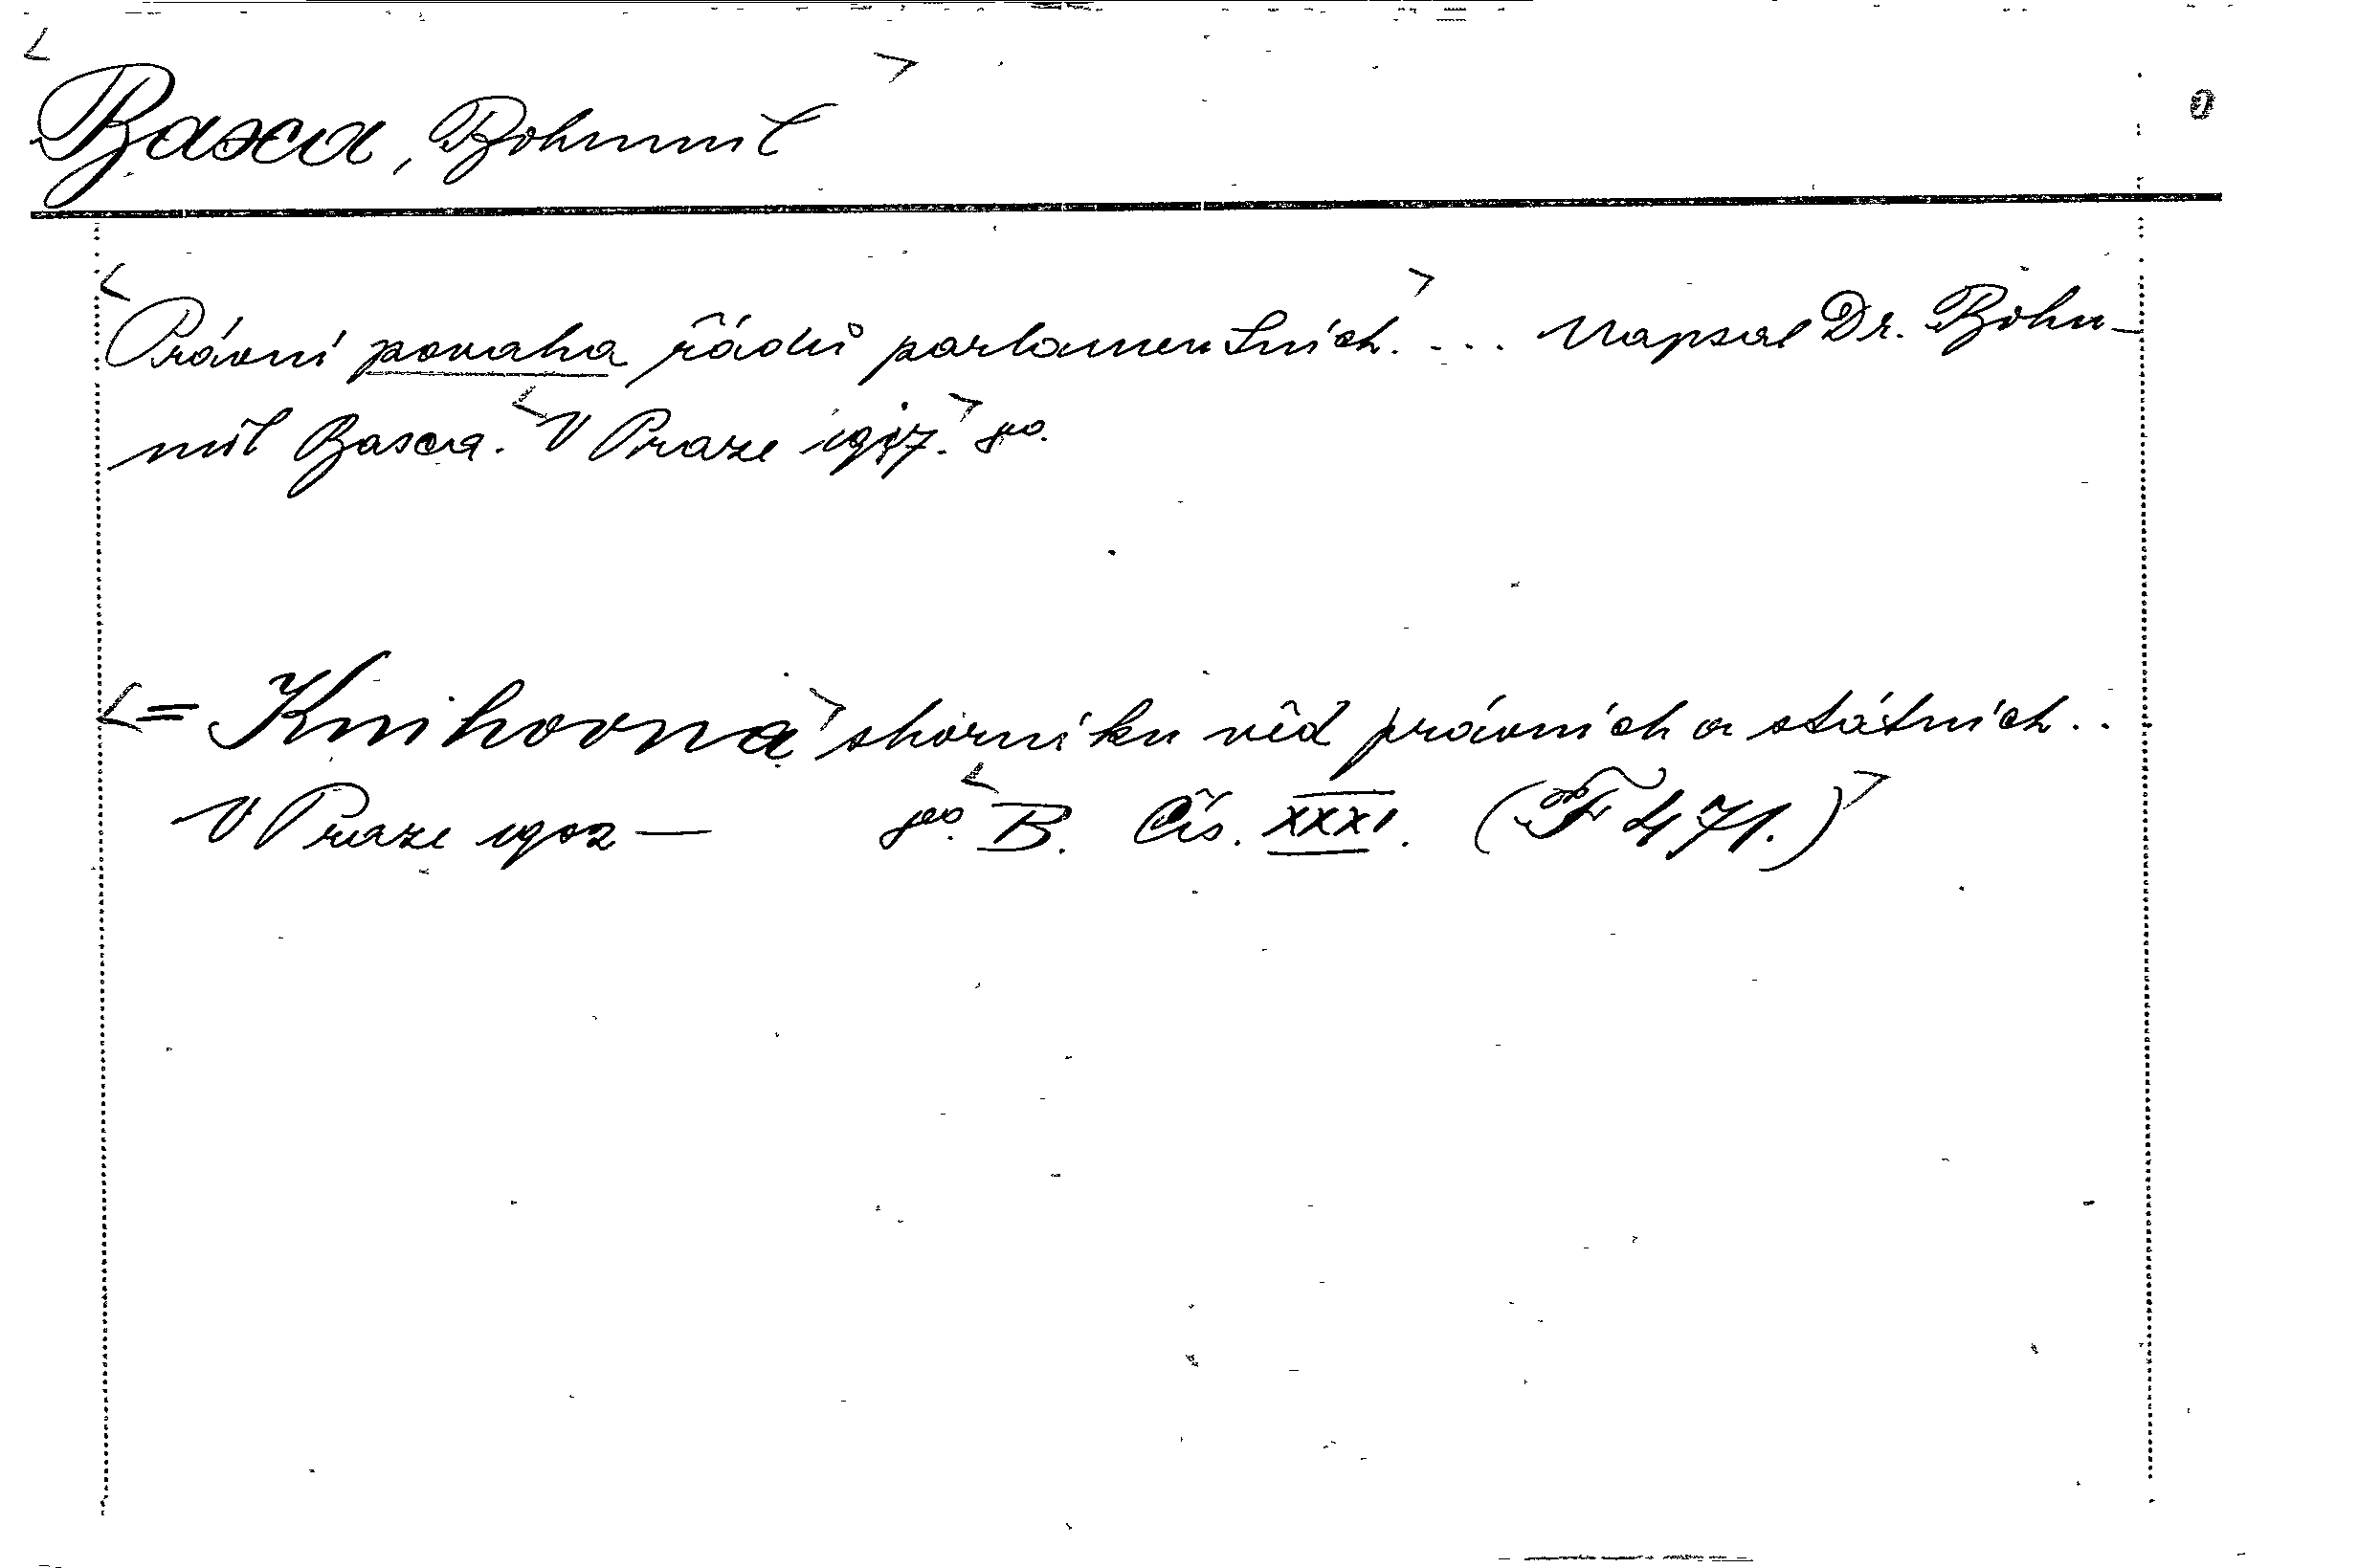 Baxa, Bohumil
Právní povaha řádů parlamentních. ... Napsal Dr. Bohu-
mil Baxa. V Praze 1917. 8º.
= Knihovna sborníku věd právních a státních..
V Praze 1902 — 8º. B. Čís. XXXI. (F 471.)